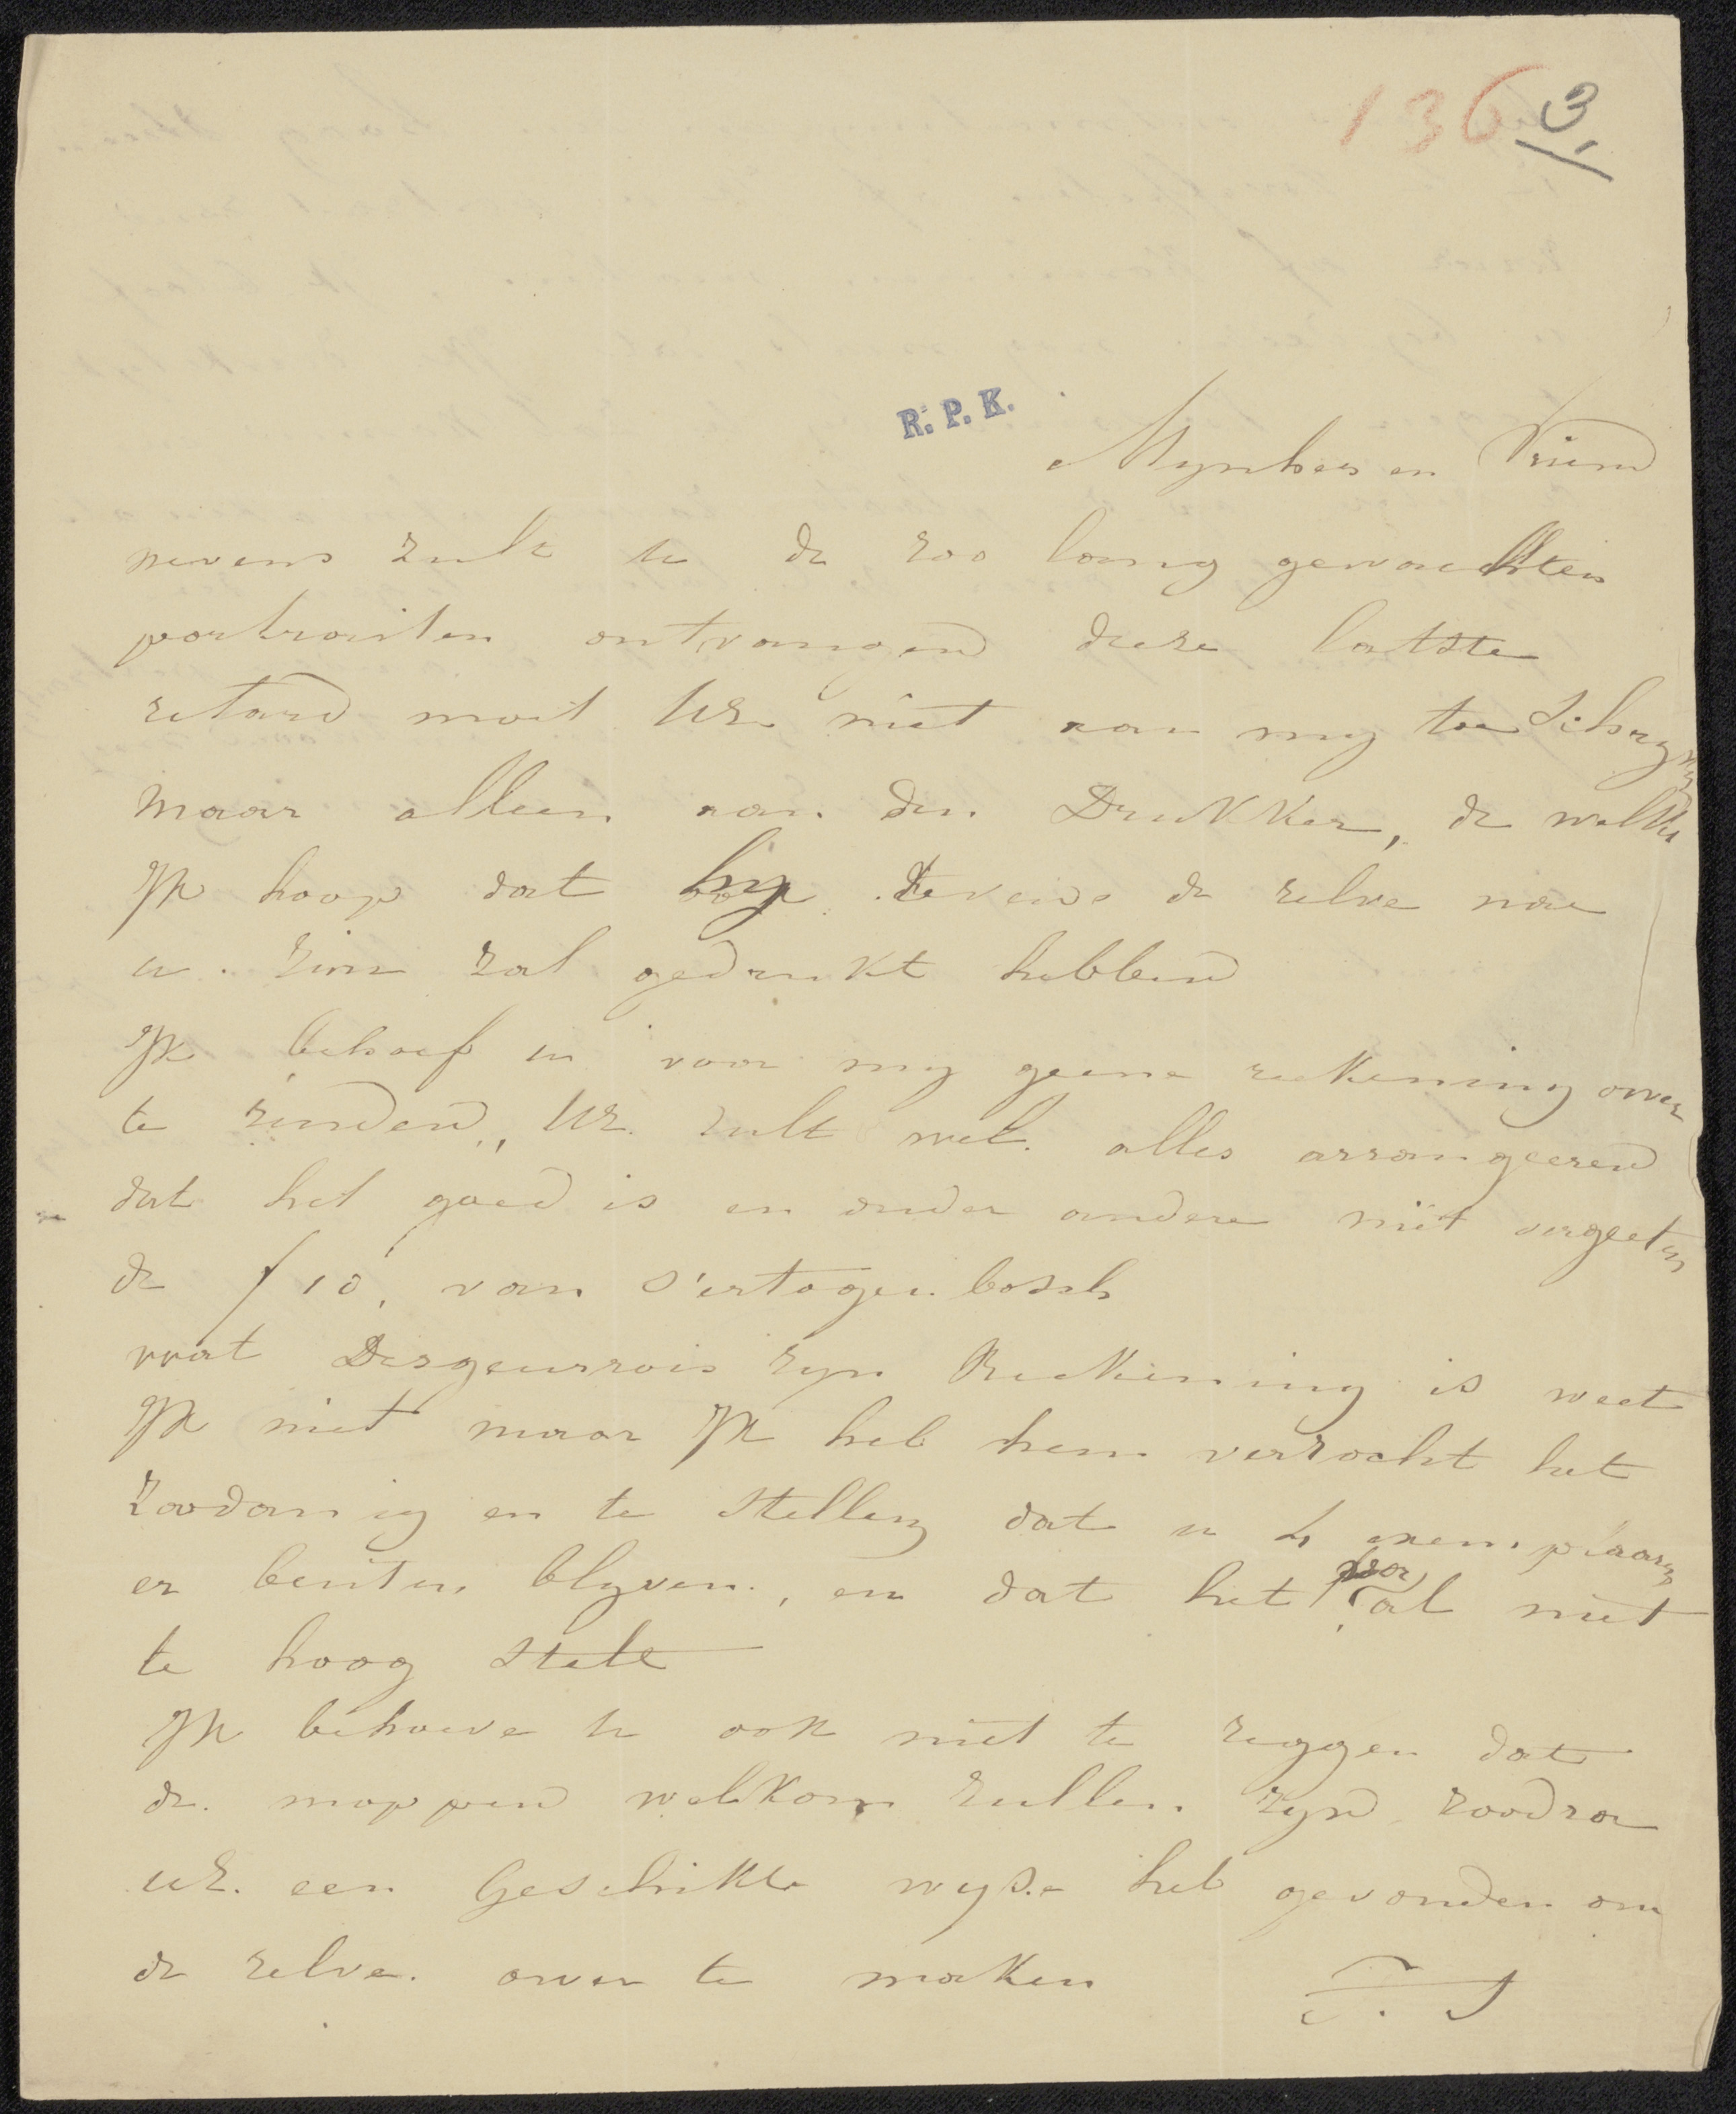 136 3
R. P. K.
Mynheer en Vriend
nevens zult u de zoo lang gewachten
portraiten ontvangen deze latste
retard moet UE. niet aan my toe schryven
maar alleen aan den Drukker, de welke
Ik hoop dat hy tevens de zelve nae
u. zinn zal gedrukt hebben
Ik behoef u voor my geene rekening over
te zenden, UE. zult wel alles arrangeeren
dat het goed is en onder andere niet vergeeten
de f 10, van s'ertogenbosch
wat Desguerrois zyn Reekening is weet
Ik niet maar Ik heb hem verzocht het
zoodanig en te stellen dat u 4 exemplaaren
er buiten blyven, en dat het zal niet
te hoog stelt
Ik behoeve u ook niet te zeggen dat
de moppen welkom zullen zyn zoodra
UE. een Geschikte wyse heb gevonden om
de zelve over te maken
T. S